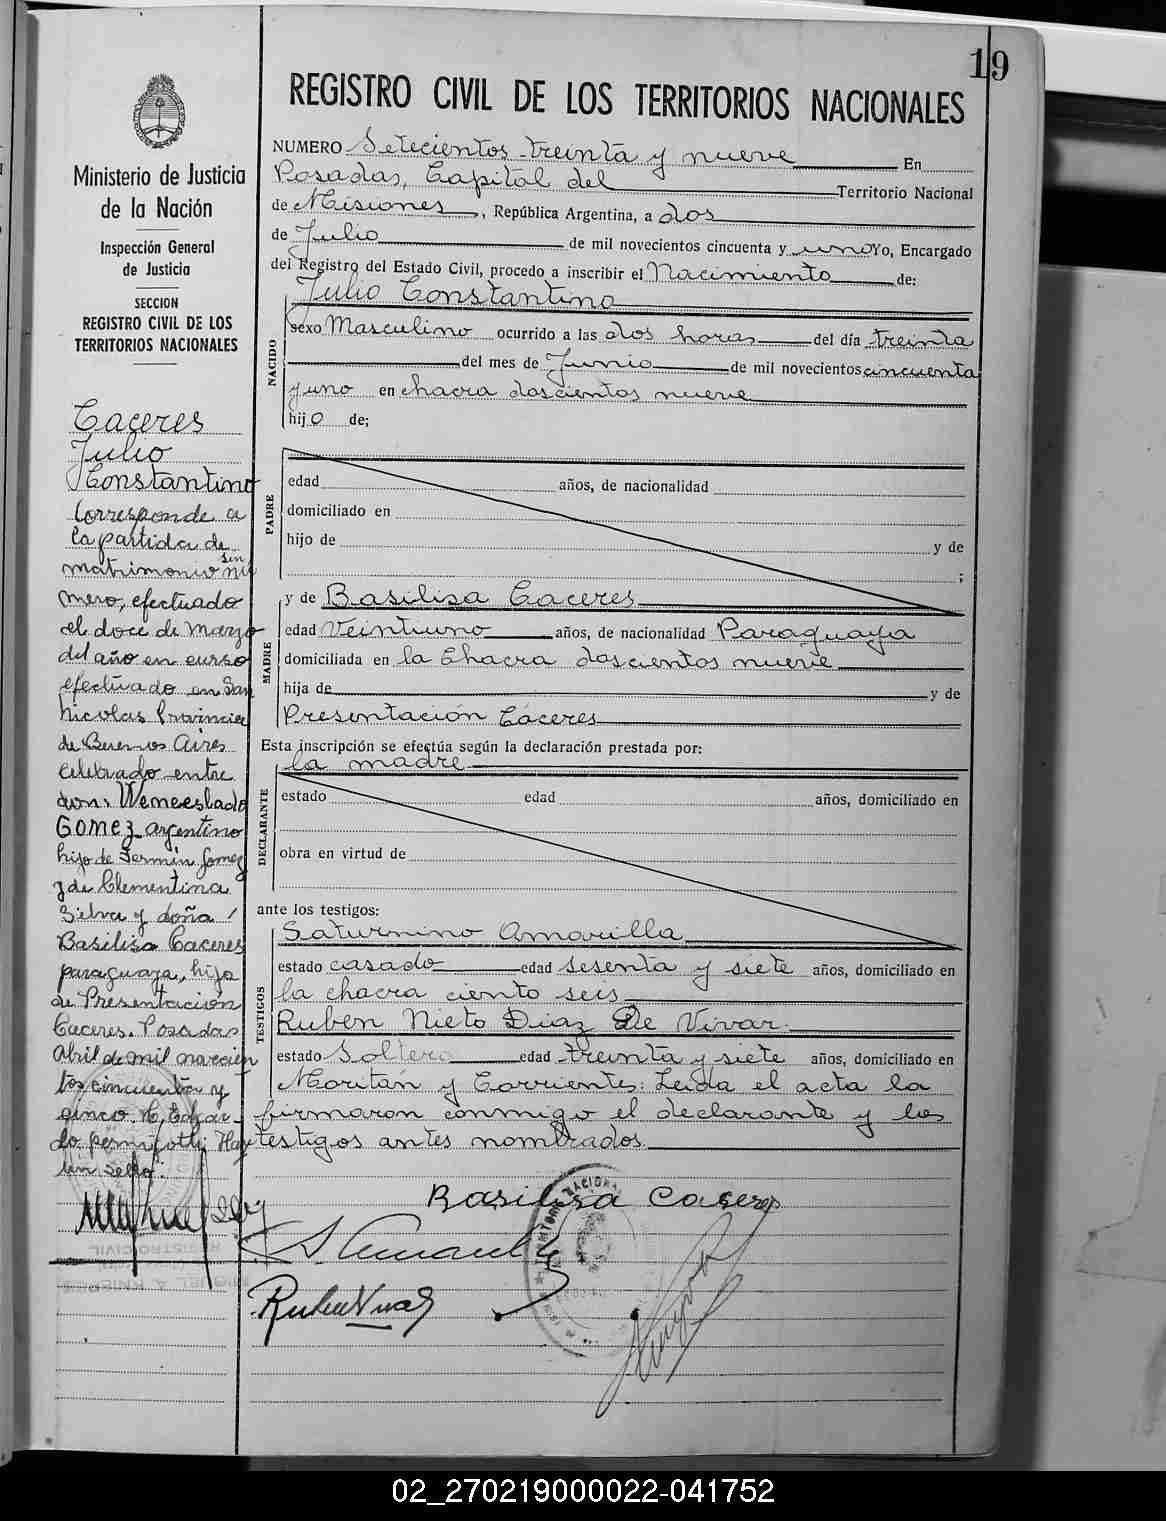 19
REGISTRO CIVIL DE LOS TERRITORIOS NACIONALES
Ministerio de Justicia
de la Nación
Inspección General
de Justicia
SECCION
REGISTRO CIVIL DE LOS
TERRITORIOS NACIONALES
Caceres
Julio
Constantino
Corresponde a
la partida de
matrimonio sin nú
mero, efectuado
el doce de Marzo
del año en curso
efectuado en San
Nicolas Provincia
de Buenos Aires
celebrado entre
don: Wenceslado
Gomez argentino
hijo de Fermín Gomez
y de Clementina
Silva y doña
Basilisa Caceres
paraguaya, hija
de Presentación
Caceres. Posadas
Abril de mil novecien
tos cincuenta y
cinco. Hay
un sello:
NUMERO Setecientos treinta y nueve En
Posadas, Capital del Territorio Nacional
de Misiones, República Argentina, a dos
de Julio de mil novecientos cincuenta y uno Yo, Encargado
del Registro del Estado Civil, procedo a inscribir el Nacimiento de:
Julio Constantino
NACIDO
sexo Masculino ocurrido a las dos horas del día treinta
del mes de Junio de mil novecientos cincuenta
y uno en chacra doscientos nueve
hijo de;
PADRE
edad años, de nacionalidad
domiciliado en
hijo de y de
;
MADRE
y de Basilisa Caceres
edad Veintiuno años, de nacionalidad Paraguaya
domiciliada en la Chacra doscientos nueve
hija de y de
Presentación Cáceres
Esta inscripción se efectúa según la declaración prestada por:
la madre
DECLARANTE
estado edad años, domiciliado en
obra en virtud de
ante los testigos:
TESTIGOS
Saturnino Amarilla
estado casado edad sesenta y siete años, domiciliado en
la chacra ciento seis
Ruben Nieto Diaz De Vivar.
estado Soltero edad treinta y siete años, domiciliado en
Moritán y Corrientes: Leida el acta la
firmaron conmigo el declarante y los
testigos antes nombrados.
Basilisa Caseres
02_270219000022-041752